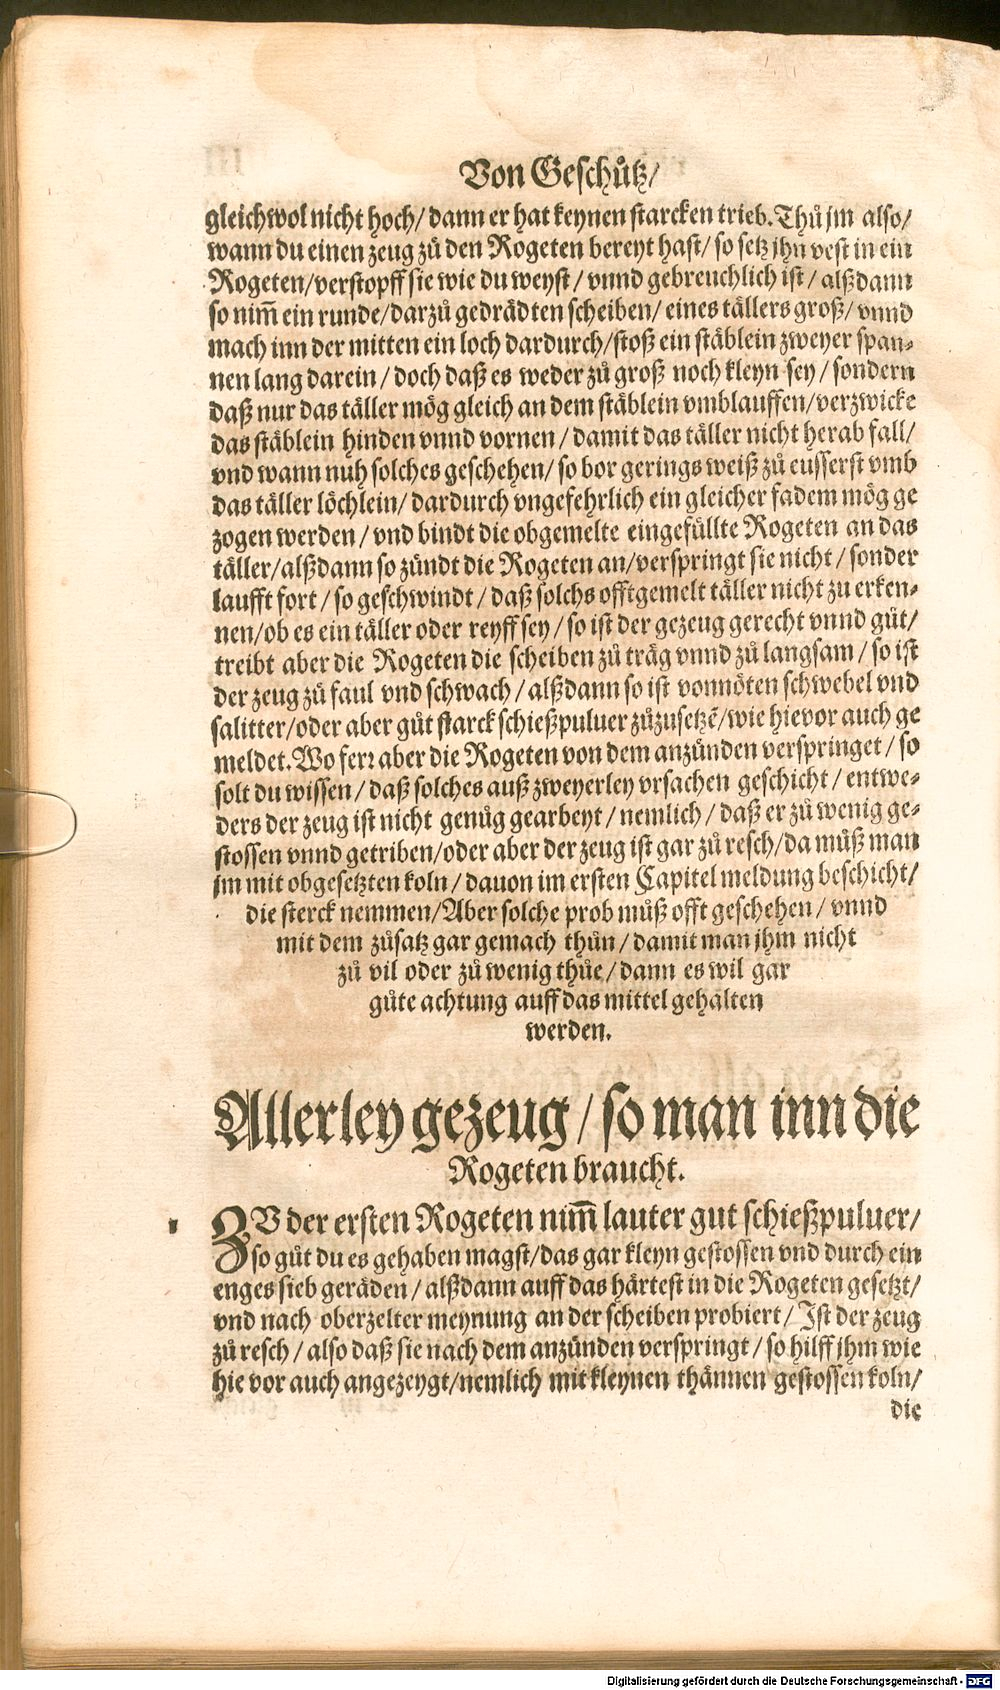 Von Geschuͤtz/
gleichwol nicht hoch/ dann er hat keynen starcken trieb. Thuͦ jm also/
wann du einen zeug zuͦ den Rogeten bereyt hast/ so setz jhn vest in ein
Rogeten/ verstopff sie wie du weyst/ vnnd gebreuchlich ist/ alßdann
so nim̃ ein runde/ darzuͦ gedrädten scheiben/ eines tällers groß/ vnnd
mach inn der mitten ein loch dardurch/ stoß ein stäblein zweyer span⸗
nen lang darein/ doch daß es weder zuͦ groß noch kleyn sey/ sondern
daß nur das täller mög gleich an dem stäblein vmblauffen/ verzwicke
das stäblein hinden vnnd vornen/ damit das täller nicht herab fall/
vnd wann nuh solches geschehen/ so bor gerings weiß zuͦ eusserst vmb
das täller löchlein/ dardurch vngefehrlich ein gleicher fadem mög ge
zogen werden/ vnd bindt die obgemelte eingefüllte Rogeten an das
täller/ alßdann so zündt die Rogeten an/ verspringt sie nicht/ sonder
laufft fort/ so geschwindt/ daß solchs offtgemelt täller nicht zu erken⸗
nen/ ob es ein täller oder reyff sey/ so ist der gezeug gerecht vnnd guͦt/
treibt aber die Rogeten die scheiben zuͦ träg vnnd zuͦ langsam/ so ist
der zeug zuͦ faul vnd schwach/ alßdann so ist vonnöten schwebel vnd
salitter/ oder aber guͦt starck schießpuluer zuͦzusetzẽ/ wie hievor auch ge
meldet. Wo ferꝛ aber die Rogeten von dem anzünden verspringet/ so
solt du wissen/ daß solches auß zweyerley vrsachen geschicht/ entwe⸗
ders der zeug ist nicht genuͦg gearbeyt/ nemlich/ daß er zuͦ wenig ge⸗
stossen vnnd getriben/ oder aber der zeug ist gar zuͦ resch/ da muͦß man
jm mit obgesetzten koln/ dauon im ersten Capitel meldung beschicht/
die sterck nemmen/ Aber solche prob muͦß offt geschehen/ vnnd
mit dem zuͦsatz gar gemach thuͦn/ damit man jhm nicht
zuͦ vil oder zuͦ wenig thuͤe/ dann es wil gar
guͦte achtung auff das mittel gehalten
werden.
Allerley gezeug/ so man inn die
Rogeten braucht.
ZV der ersten Rogeten nim̃ lauter gut schießpuluer/
so guͦt du es gehaben magst/ das gar kleyn gestossen vnd durch ein
enges sieb geräden/ alßdann auff das härtest in die Rogeten gesetzt/
vnd nach oberzelter meynung an der scheiben probiert/ Ist der zeug
zuͦ resch/ also daß sie nach dem anzünden verspringt/ so hilff jhm wie
hie vor auch angezeygt/ nemlich mit kleynen thännen gestossen koln/
die
Digitalisierung gefördert durch die Deutsche Forschungsgemeinschaft - DFG